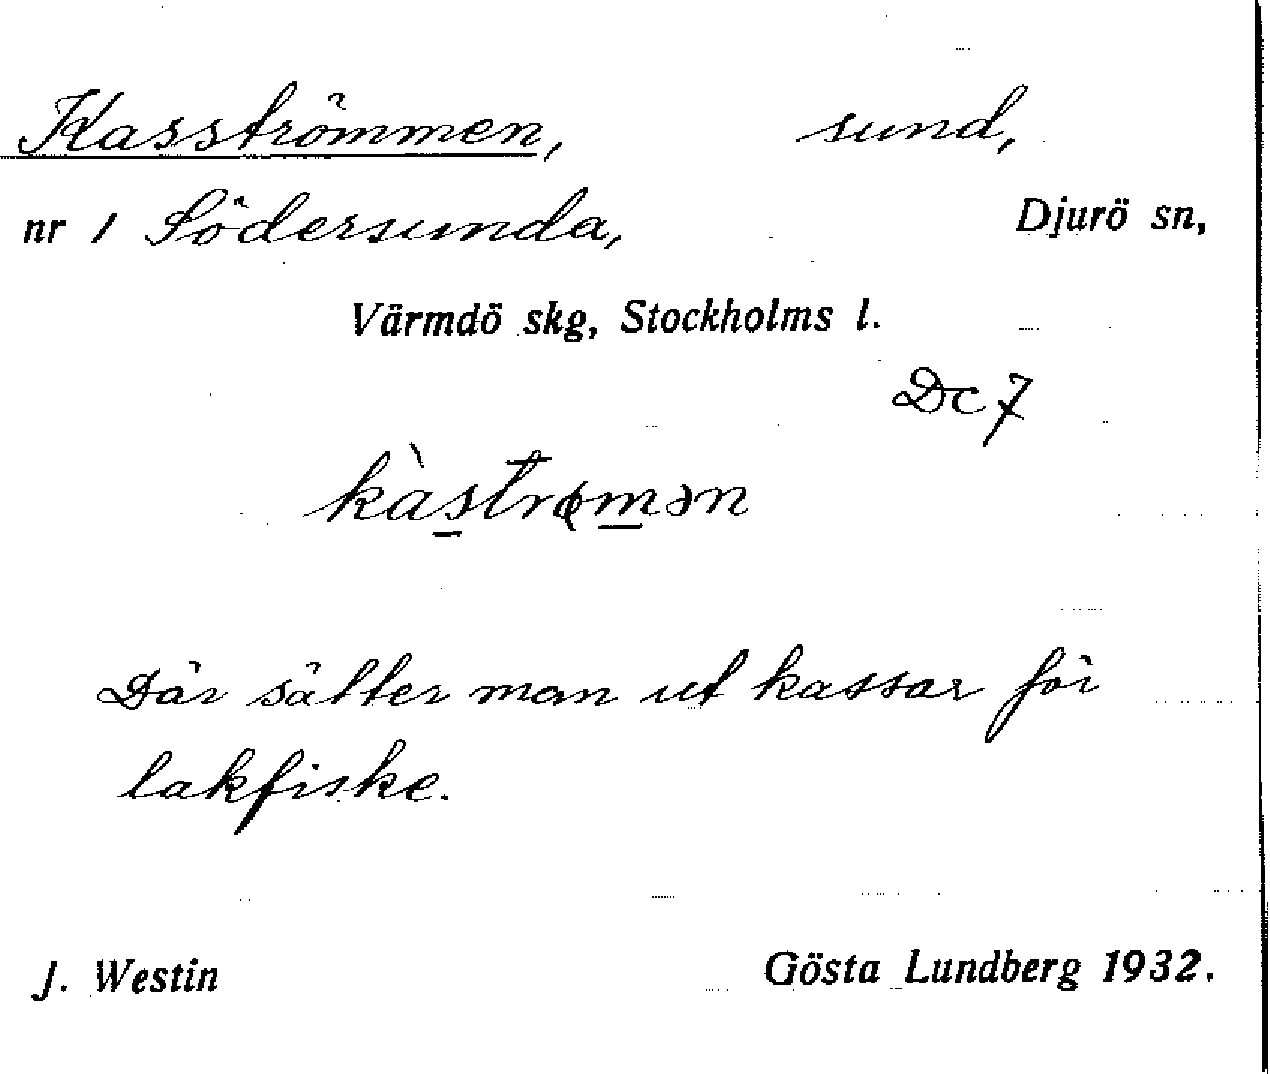 Kasströmmen, sund,
nr 1 Södersunda, Djurö sn,
Värmdö skg, Stockholms l.
Dc 7
kàs̲trøm̲ən
Där sätter man ut kassar för
lakfiske.
J. Westin Gösta Lundberg 1932.